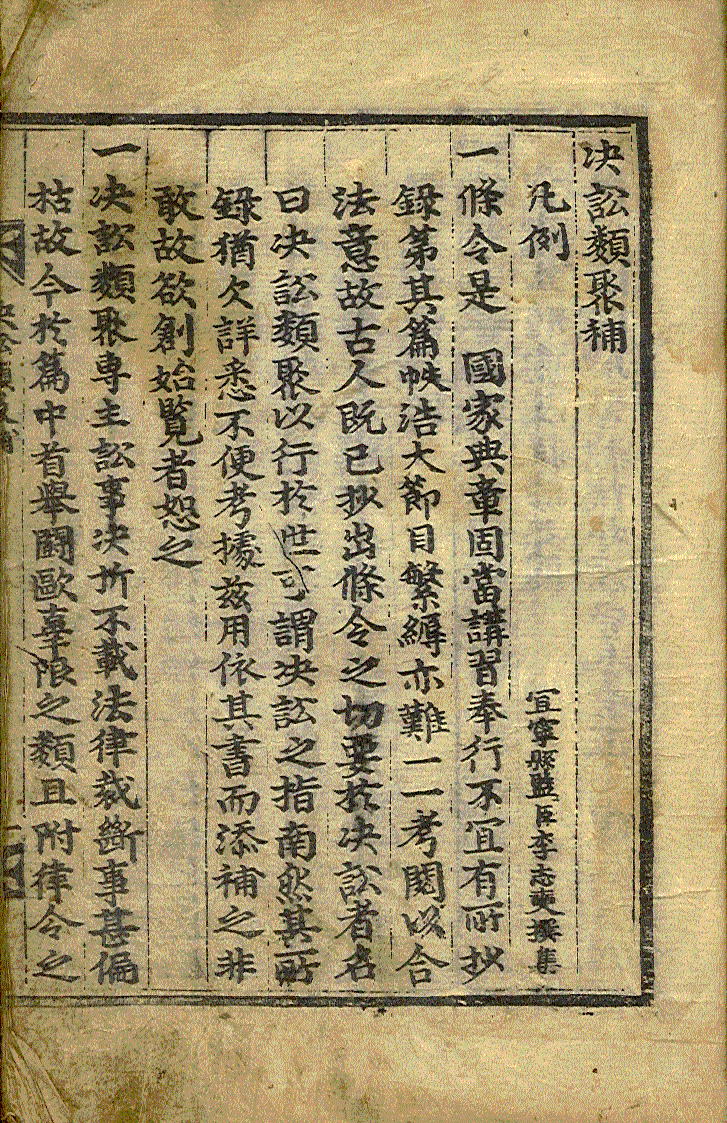 決訟類聚補
凡例　宜寧縣監臣李志奭撰集
一條令是　國家典章固當講習奉行不宜有所抄
錄第其篇帙浩大節目繁縟亦難一一考閱以合
法意故古人既已抄出條令之切要於決訟者名
曰决訟類聚以行於世可謂决訟之指南然其所
錄猶欠詳悉不便考據茲用依其書而添補之非
敢故欲創始覽者恕之
一决訟類聚專主訟事决折不載法律裁斷事甚偏
枯故今於篇中首舉鬪歐辜限之類且附律令之